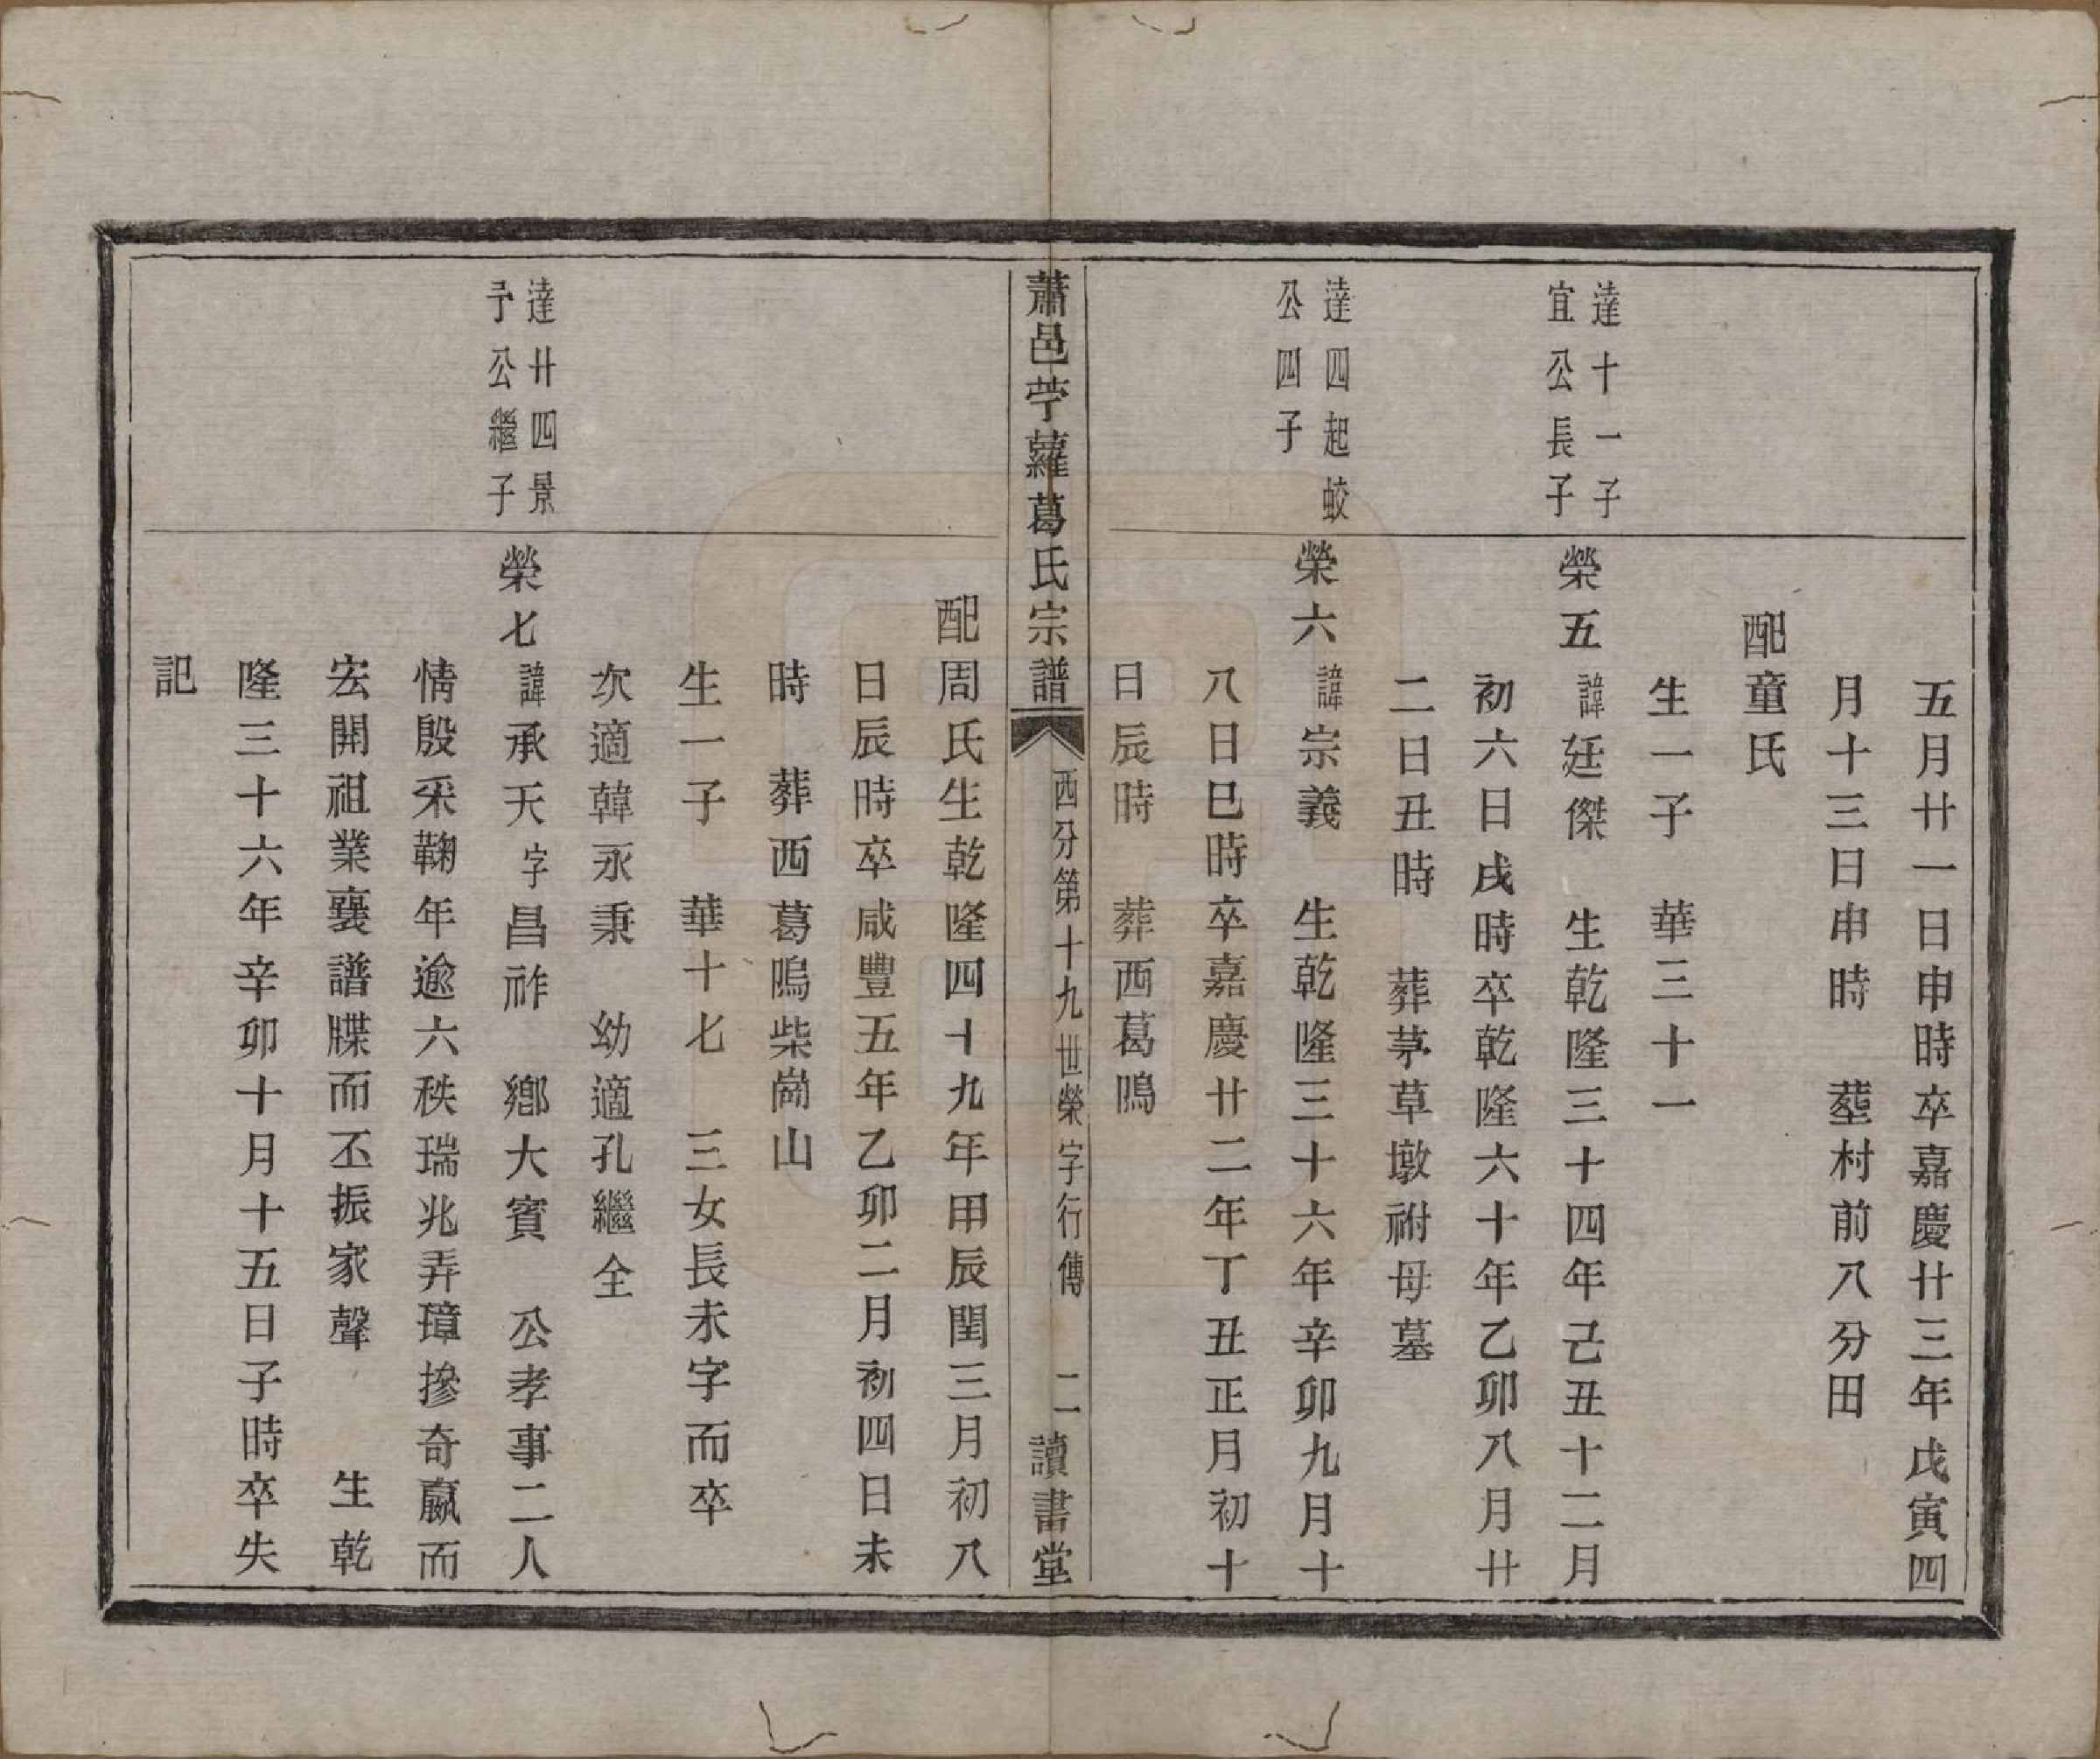 五月廿一日申時卒嘉慶廿三年戊寅四
月十三日申時　塟村前八分田
配童氏
生一子　華三十一
達十一子
宜公長子
榮五諱廷傑　生乾隆三十四年己丑十二月
初六日戌時卒乾隆六十年乙卯八月廿
二日丑時　葬茅草墩祔母墓
達四起蛟
公四子
榮六諱宗義　生乾隆三十六年辛卯九月十
八日巳時卒嘉慶廿二年丁丑正月初十
日辰時　葬西葛隖
蕭邑苧蘿葛氏宗譜
西分第十九世榮字行傳　二
讀書堂
配周氏生乾隆四十九年甲辰閏三月初八
日辰時卒咸豐五年乙卯二月初四日未
時　葬西葛隖柴崗山
生一子　華十七　三女長未字而卒
次適韓永秉　幼適孔繼全
達廿四景
予公繼子
榮七諱承天字昌祚　鄉大賓　公孝事二人
情殷采鞠年逾六秩瑞兆弄璋摻奇贏而
宏開祖業襄譜牒而丕振家聲　生乾
隆三十六年辛卯十月十五日子時卒失
記